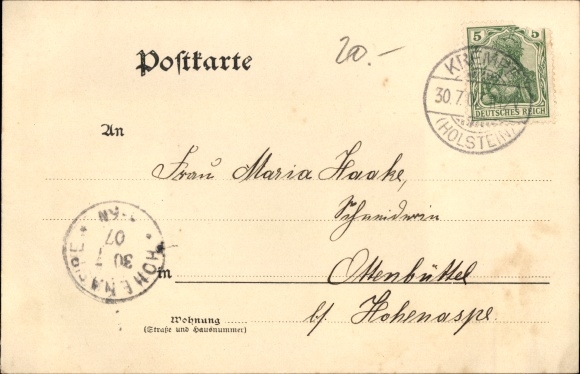 Postkarte
20.-
5 5
DEUTSCHES REICH
KREMPE
30.7.
(HOLSTEIN)
An
Frau Maria Haake,
Schneiderin
in Ottenbüttel
b/ Hohenaspe.
Wohnung
(Straße und Hausnummer)
HOHENASPE
30
07